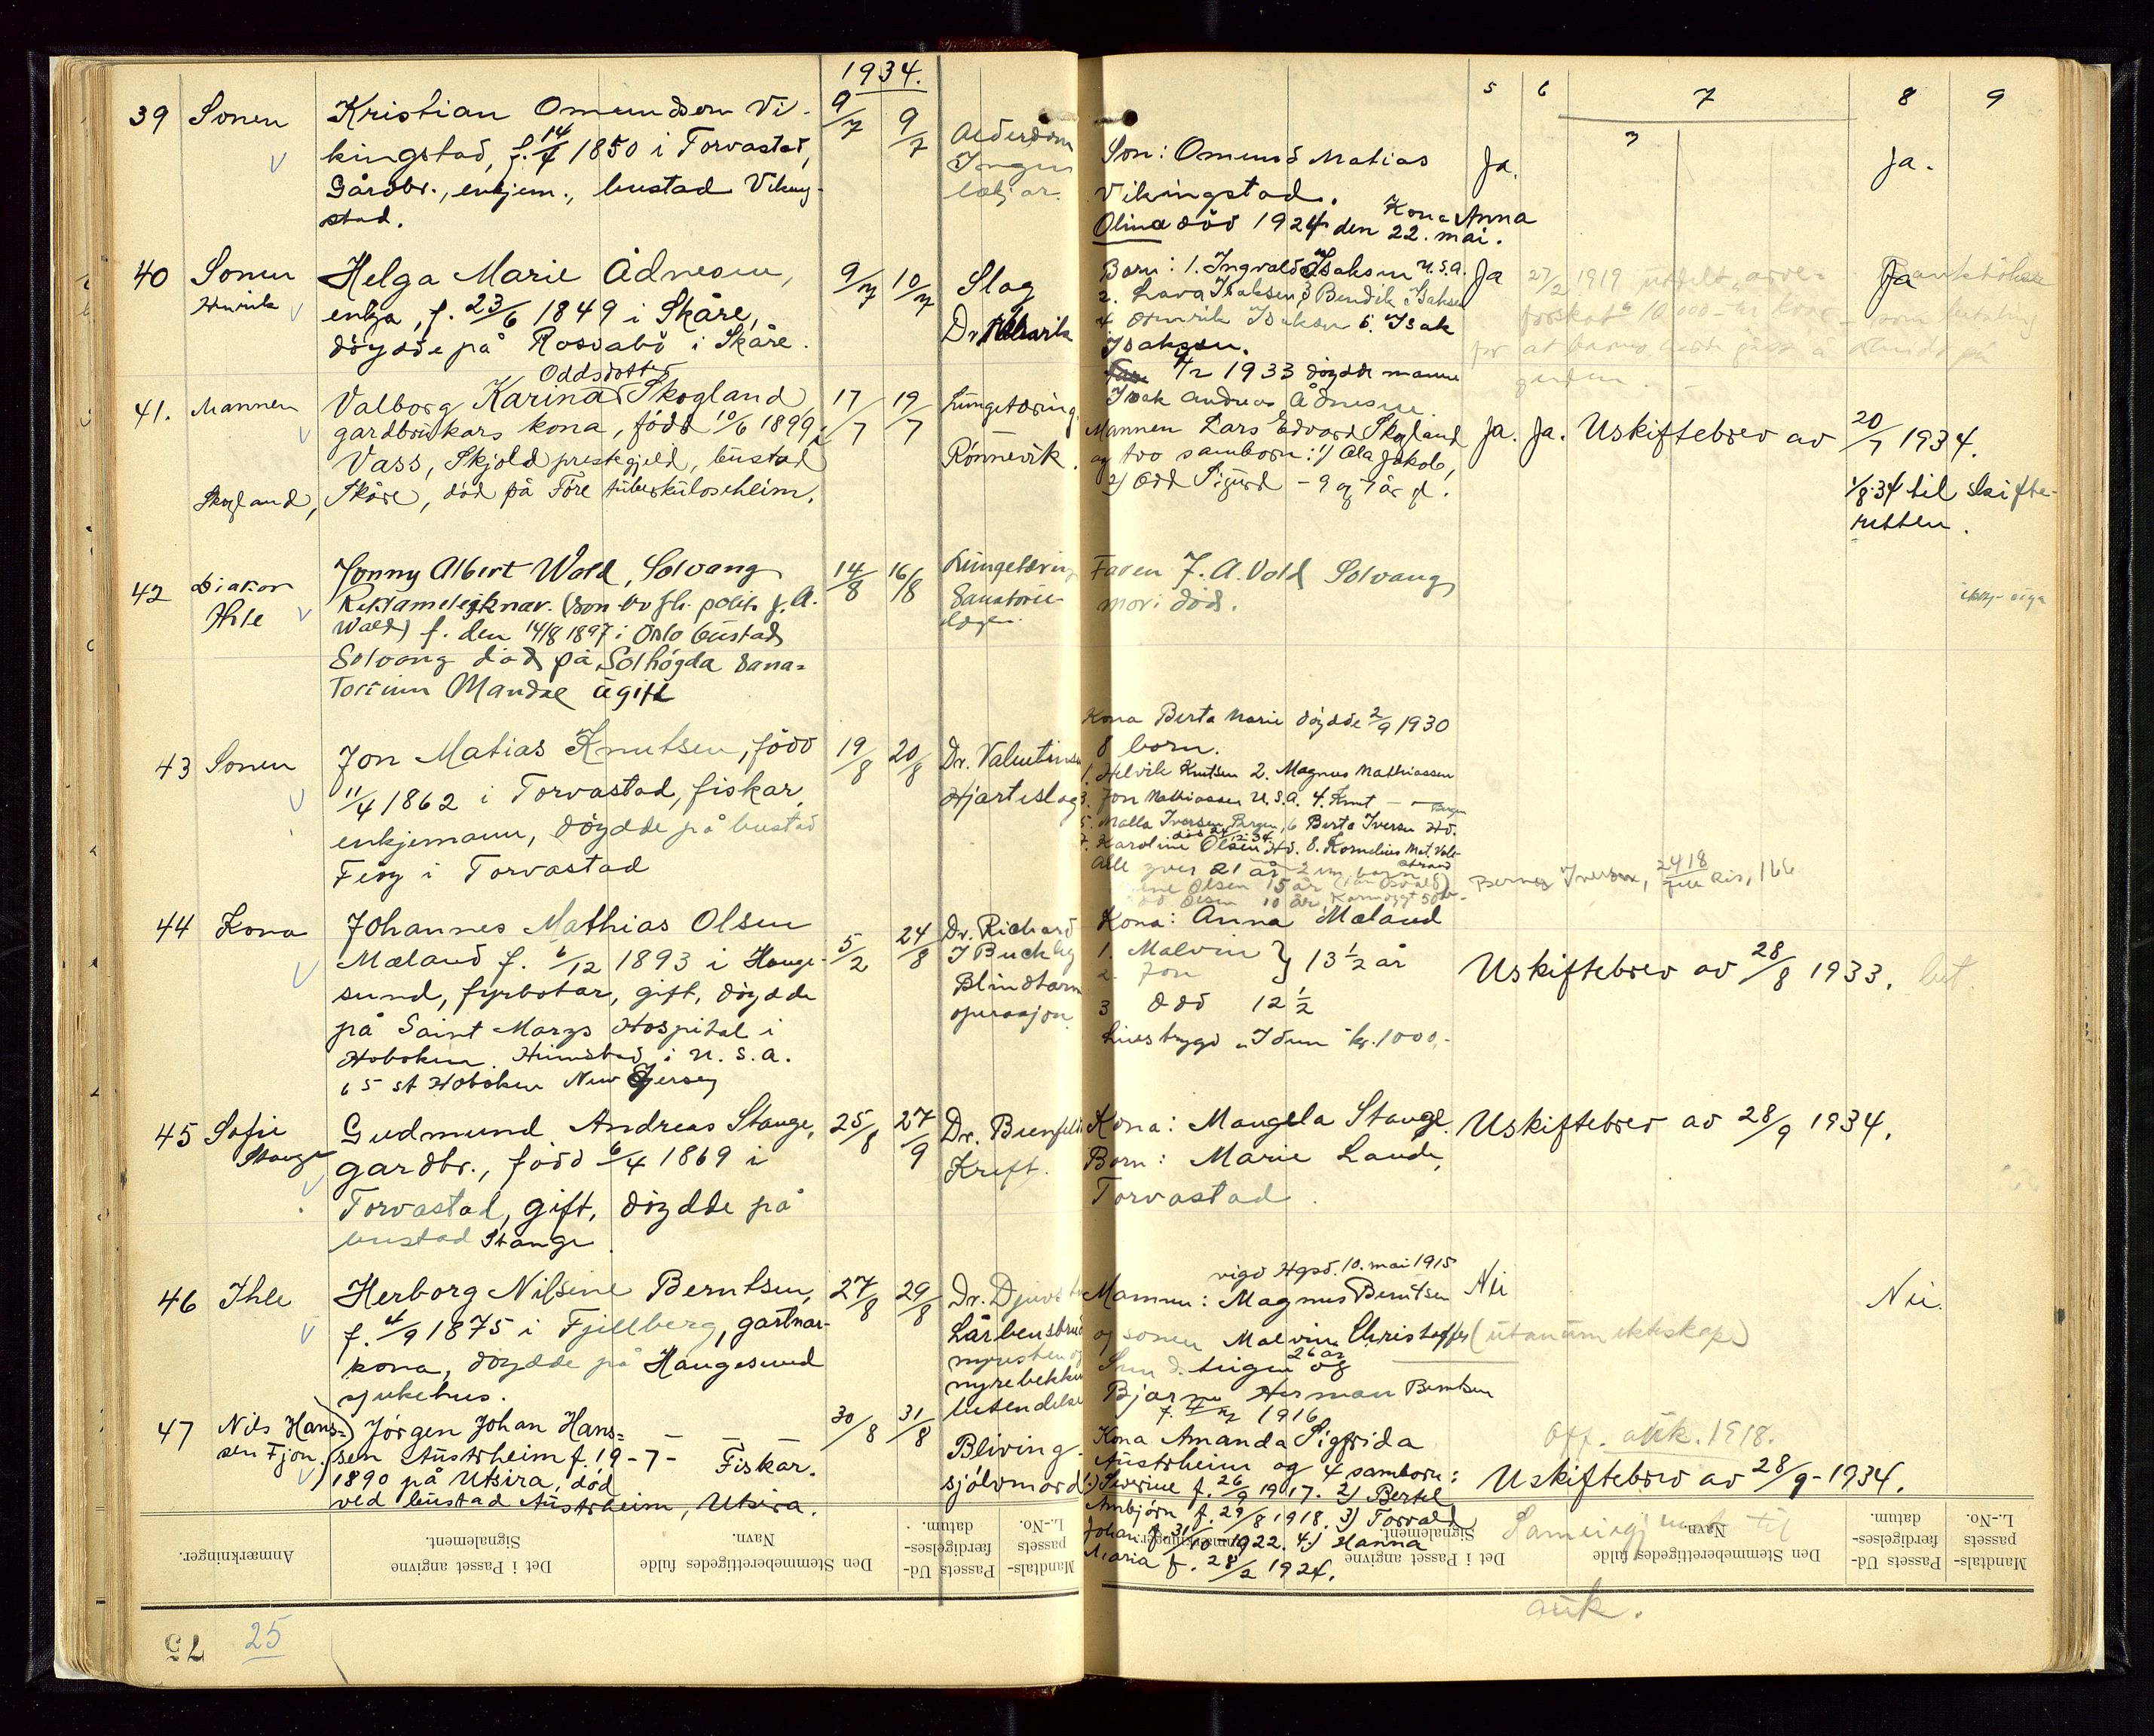 1934.
39 Sonen Kristian Omundsen Vi-
kingstad, f. 14/4 1850 i Torvastad,
Gårdbr., enkjem., bustad Viking-
stad.
9/7 9/7
Alderdom
Ingen
lækjar.
Son: Omund Matias
Vikingstad.
Kona Anna
Olina död 1924 den 22. mai.
5 6 7 8 9
Ja. Ja.
40 Sonen
Henrik
Helga Marie Ådnesen,
enkja, f. 23/6 1849 i Skåre,
döydde på Rossabö i Skåre.
9/7 10/7
Slag
Dr.
Born: 1. Ingvald Isaksen U.S.A.
2. Lava Isaksen 3 Bendik Isaksen
4 Henrik Isaksen 5. Isak
Isaksen.
4/2 1933 döydde mannen
Isak Andreas Ådnesen.
Ja 27/2 1919 utdelt
10.000 Ja
41. Mannen
Skogland,
Oddsdotter
Valborg Karina Skogland
gardbrukars kona, född 10/6 1899 i
Vass, Skjold prestegjeld, bustad
Skåre, död på Före tuberkuloseheim.
17/7 19/7
Lungetæring.
Rönnevik.
Mannen Lars Edvard Skogland
og tvo samborn: 1) Ola Jakob,
2) Odd Sigurd - 9 og 7 år gl.
Ja. Ja. Uskiftebrev av 20/7 1934.
1/8-34 til skifte-
retten.
42 Diakon
Ihle
Jonny Albert Wold, Solvang
Reklameteiknar. (Son av fh. politi J. A.
Wold) f. den 14/8 1897 i Oslo bustad
Solvang död på Solhögda Sana-
torium Mandal ugift
14/8 16/8
Lungetæring
Sanatorie-
lægen.
Faren J. A. Vold Solvang
mori död.
43 Sonen Jon Matias Knutsen, född
11/4 1862 i Torvastad, fiskar,
enkjemann, döydde på bustad
Feöy i Torvastad
19/8 20/8
Dr. Valentinsen
Hjarteslag
Kona Berta Marie döydde 2/9 1930
8 born.
1. Helvik Knutsen 2. Magnus Mathiassen
3. Jon Mathiassen U.S.A. 4. Knut —
5. Malla Iversen Bergen, 6 Berta Iversen Hd.
död 24/12 34
7. Karoline Olsen Hd. 8. Kornelius Mat. Vole-
strand
Alle yver 21 år
Olsen 15 år
Olsen 10 år
44 Kona Johannes Mathias Olsen
Mæland f. 6/12 1893 i Hauge-
sund, fyrbötar, gift, döydde
på Saint Marys Hospital i
Hoboken. Heimstad i U. S. A.
65 st Hoboken New Jersey
5/2 24/8
Dr. Richard
J Buckley
Blindtarm
operasjon.
Kona: Anna Mæland
1. Malvin } 13 1/2 år
2. Jon
3 Odd 12 1/2
Livstrygd "Idun" kr. 1000.-
Uskiftebrev av 28/8 1933.
45 Sofie
Stange
Gudmund Andreas Stange,
gardbr., född 6/4 1869 i
Torvastad, gift, döydde på
bustad Stange
25/8 27/9
Dr. Bienfeldt
Kreft.
Kona: Mangela Stange.
Born: Marie Lande,
Torvastad.
Uskiftebrev av 28/9 1934.
46 Ihle Herborg Nilsine Berntsen,
f. 4/9 1875 i Fjellberg, gartnar-
kona, döydde på Haugesund
sjukehus.
27/8 29/8
Dr. Djuvstein
Lårbensbrud
nyresten og
nyrebekken
betendelse
vigd Hgsd. 10. mai 1915
Mannen: Magnus Berntsen
og sonen Malvin Christoffer (utanum ektskap)
26 år
og
Bjarne Herman Berntsen
1916
Nei Nei.
47 Nils Hans-
sen Fjon.
Jörgen Johan Hans-
sen Austrheim f. 19-7-
1890 på Utsira, död
ved bustad Austrheim, Utsira.
Fiskar.
30/8 31/8
Bliving-
sjölvmord
Kona Amanda Sigfrida
Austrheim og 4 samborn:
1) Sverine f. 26/9 1917. 2) Bertel
Arnbjörn f. 29/8 1918. 3) Torvald
Johan f. 31/10 1922. 4) Hanna
Maria f. 28/2 1924.
Off. auk. 1918.
Uskiftebrev av 28/9 - 1934.
auk.
Anmærkninger.
Det i Passet angivne
Signalement.
Den Stemmeberettigedes fulde
Navn.
Passets Ud-
færdigelses-
datum.
Mandtals-
passets
L.-No.
Anmærkninger.
Det i Passet angivne
Signalement.
Den Stemmeberettigedes fulde
Navn.
Passets Ud-
færdigelses-
datum.
Mandtals-
passets
L.-No.
75 25